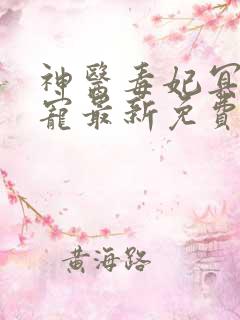 神醫毒妃冥
寵最新免費
黃海路